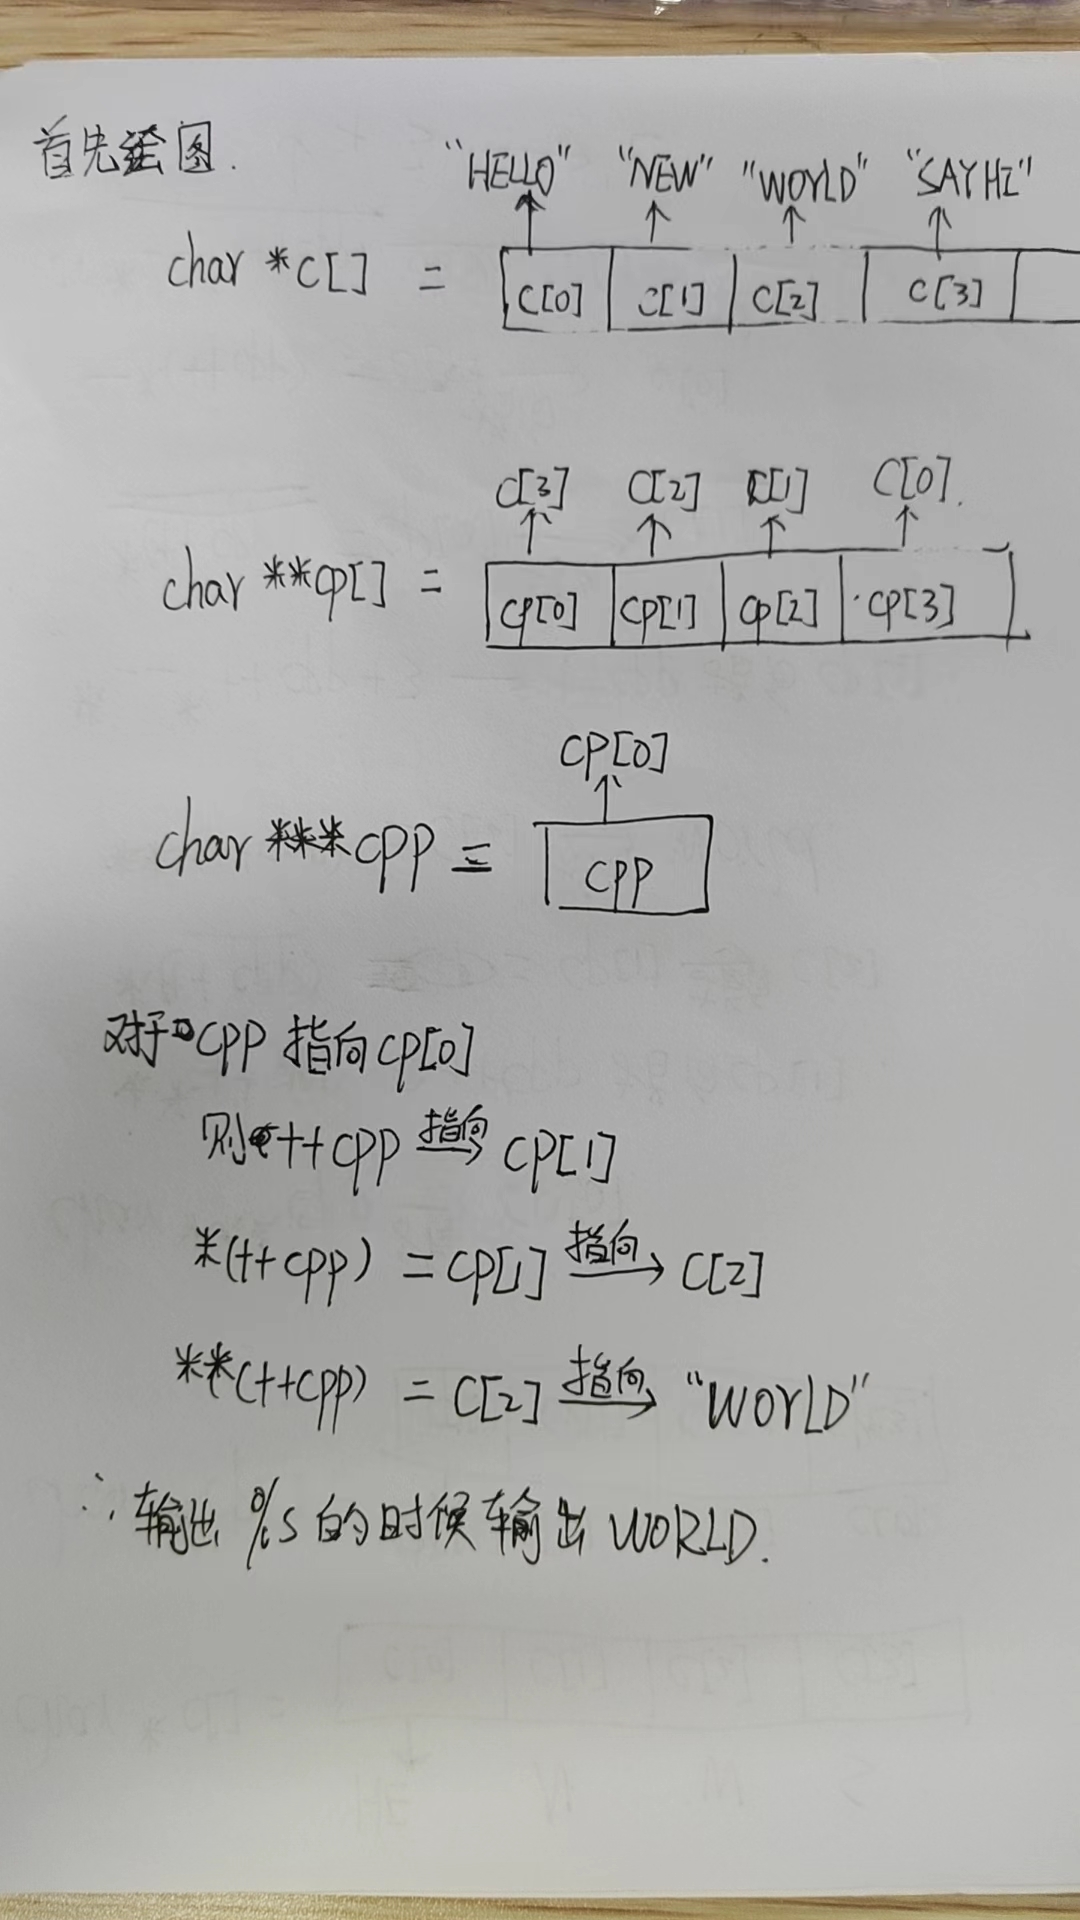 首先绘图.
"HELLO" "NEW" "WOrLD" "SAYHI"
char *c[] = c[0] c[1] c[2] c[3]
c[3] c[2] c[1] c[0].
char **cp[] = cp[0] cp[1] cp[2] cp[3]
cp[0]
char ***cpp = cpp
对于cpp 指向cp[0]
则++cpp 指向 cp[1]
*(++cpp) = cp[1] 指向 c[2]
**(++cpp) = c[2] 指向 "WOrLD"
∴输出 %s 的时候输出 WORLD.